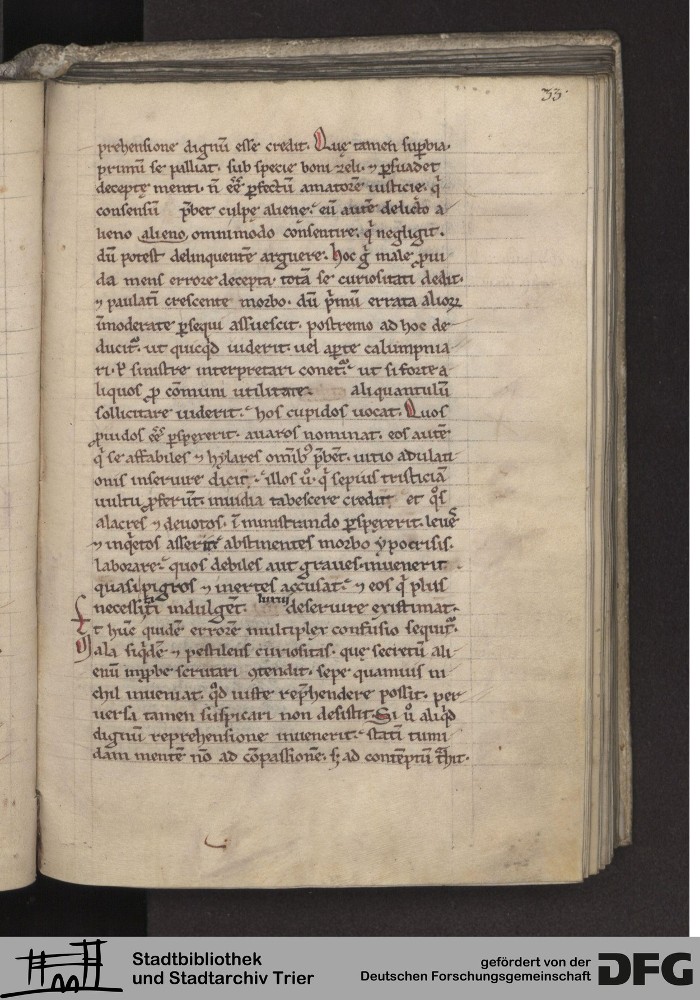 33.
prehensione dignū esse credit. Quę tamen suꝑbia.
primū se palliat. sub specie boni zeli. ⁊ ꝑsuadet
deceptę menti. ñ eēē ꝑfectū amatorē iusticie. q̇
consensū p̄bet culpę alienę. eū autē delicto a
lieno alieno omnimodo consentire. q̇ negligit.
dū potest delinquentē arguere. hoc g̊ male ꝓui
da mens errore decepta. totā se curiositati dedit.
⁊ paulatī crescente morbo. dū ṗmū errata alioꝝ
īmoderate ꝑsequi assuescit. postremo ad hoc de
ducit᷑. ut quicq̇d uiderit. uel aꝑte calumpnia
ri. ł sinistre interpretari conet᷑. ut si forte a
liquos ꝓ cōmuni utilitate. aliquantulū
sollicitare uiderit. hos cupidos uocat. Quos
ꝓuidos eēē ꝑspexerit. auaros nominat. eos autē
q̇ se affabiles ⁊ hylares omībꝰ p̄bēt. uitio adulati
onis inseruire dicit. illos ů. q̇ sepius tristiciā
uultu ꝓferūt. inuidia tabescere credit et q̊s
alacres ⁊ deuotos. ī ministrando ꝑspexerit. leues
⁊ inq̇etos asserit abstinentes morbo ypocrisis.
laborare. quos debiles aut graues inuenerit
quasi pigros ⁊ inertes accusat. ⁊ eos q̇ plus
necessitati indulgēt. deseruire existimat.
Et hūc quidē errorē multiplex confusio sequit᷑.
Mala siq̇dē ⁊ pestilens curiositas. quę secretū ali
enū inp̱be scrutari ꝯtendit. sepe quamuis ni
chil inueniat. q̊d iuste rep̄hendere possit. per
uersa tamen suspicari non desistit. Si ů aliq̇d
dignū reprehensione inuenerit. statī tumi
dam mentē nō ad cōpassionē. sꝫ ad contēptū t̄hit.
Stadtbibliothek
und Stadtarchiv Trier
gefördert von der
Deutschen Forschungsgemeinschaft
DFG